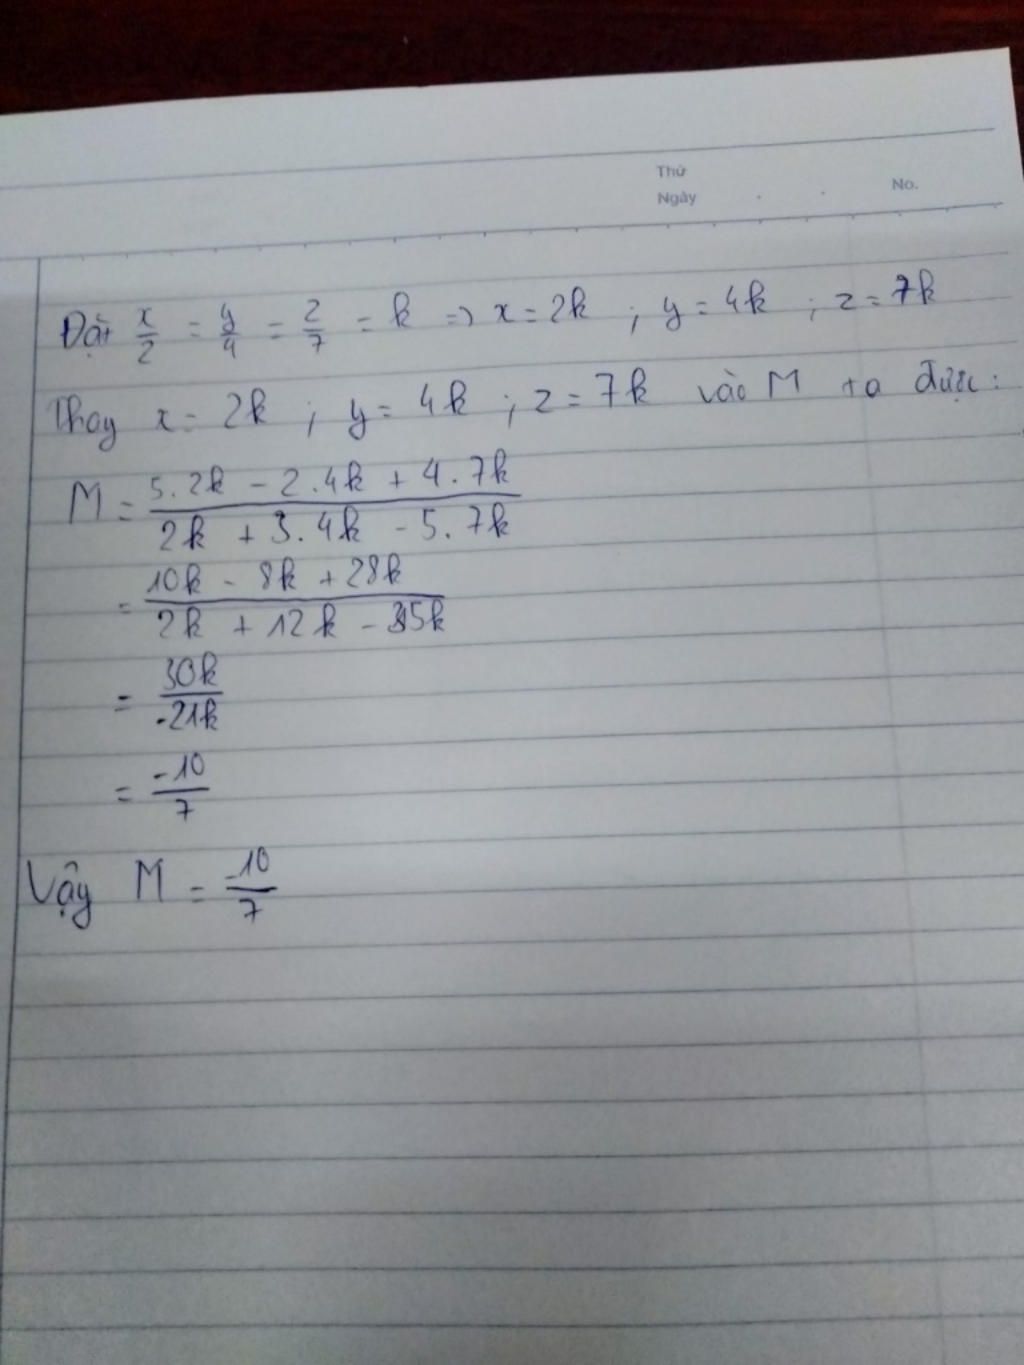 Thứ
Ngày No.
Đặt x/2 = y/4 = z/7 = k => x = 2k ; y = 4k ; z = 7k
Thay x = 2k ; y = 4k ; z = 7k vào M ta được :
M = (5.2k - 2.4k + 4.7k)/(2k + 3.4k - 5.7k)
= (10k - 8k + 28k)/(2k + 12k - 35k)
= 30k/-21k
= -10/7
Vậy M = -10/7